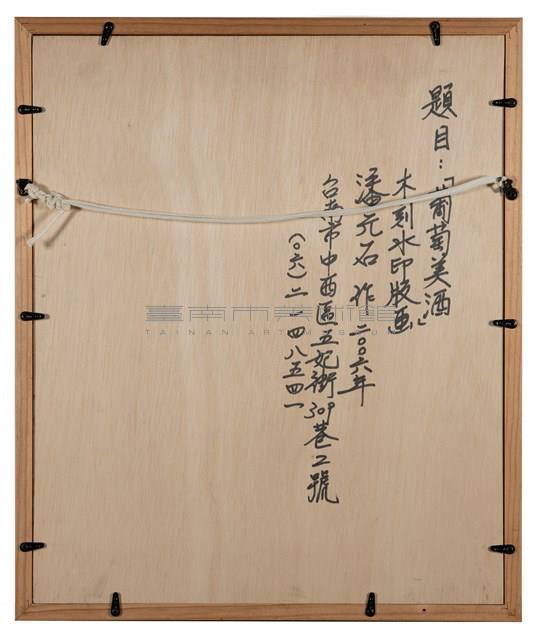 題目：「葡萄美酒」
木刻水印版画
潘元石 作 二〇〇六年
台南市中西區五妃街309巷2號
(〇六)二一四八五四一
臺南市美術館
TAINAN ART MUSEUM